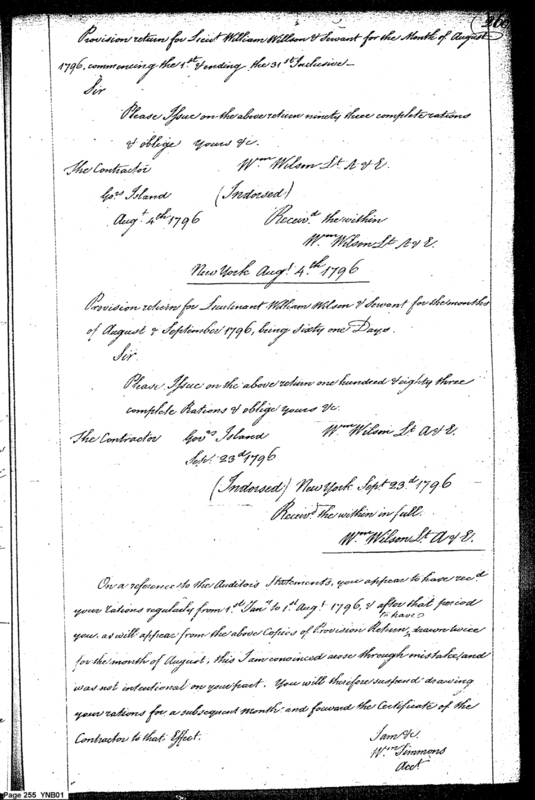 Provision return for Lieut William Willson & Servant for the Month of August
1796, commencing the 1st & ending the 31st Inclusive—
Sir
Please Issue on the above return ninety three complete rations
& oblige yours &c.
The Contractor Wm Wilson Lt A & E.
Govs Island (Indorsed)
Augt 4th 1796 Receivd the within
Wm Wilson Lt A & E.
New York Augt 4th 1796
Provision return for Lieutenant William Wilson & Servant for the months
of August & September 1796, being sixty one Days.
Sir
Please Issue on the above return one hundred & eighty three
complete Rations & oblige yours &c.
The Contractor Govs Island Wm Wilson Lt A & E.
Sept. 23d 1796
(Indorsed) New York Sept 23d 1796
Receivd the within in full.
Wm Wilson Lt. A & E.
On a reference to the Auditors Statements, you appear to have recd
your rations regularly from 1st Jany to 1st Augt 1796, & after that period
to have
you, as will appear from the above Copies of Provision Return, drawn twice
for the month of August, this I am convinced arose through mistake, and
was not intentional on your part. You will therefore suspend drawing
your rations for a subsequent month and forward the Certificate of the
Contractor to that Effect.
I am &c.
Wm Simmons
Acct
Page 255 YNB01